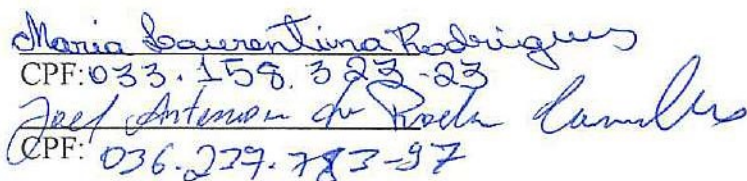 Maria Laurentina Rodrigues
CPF: 033.158.323-23
Joel Antenson da Rocha
CPF: 036.239.783-97